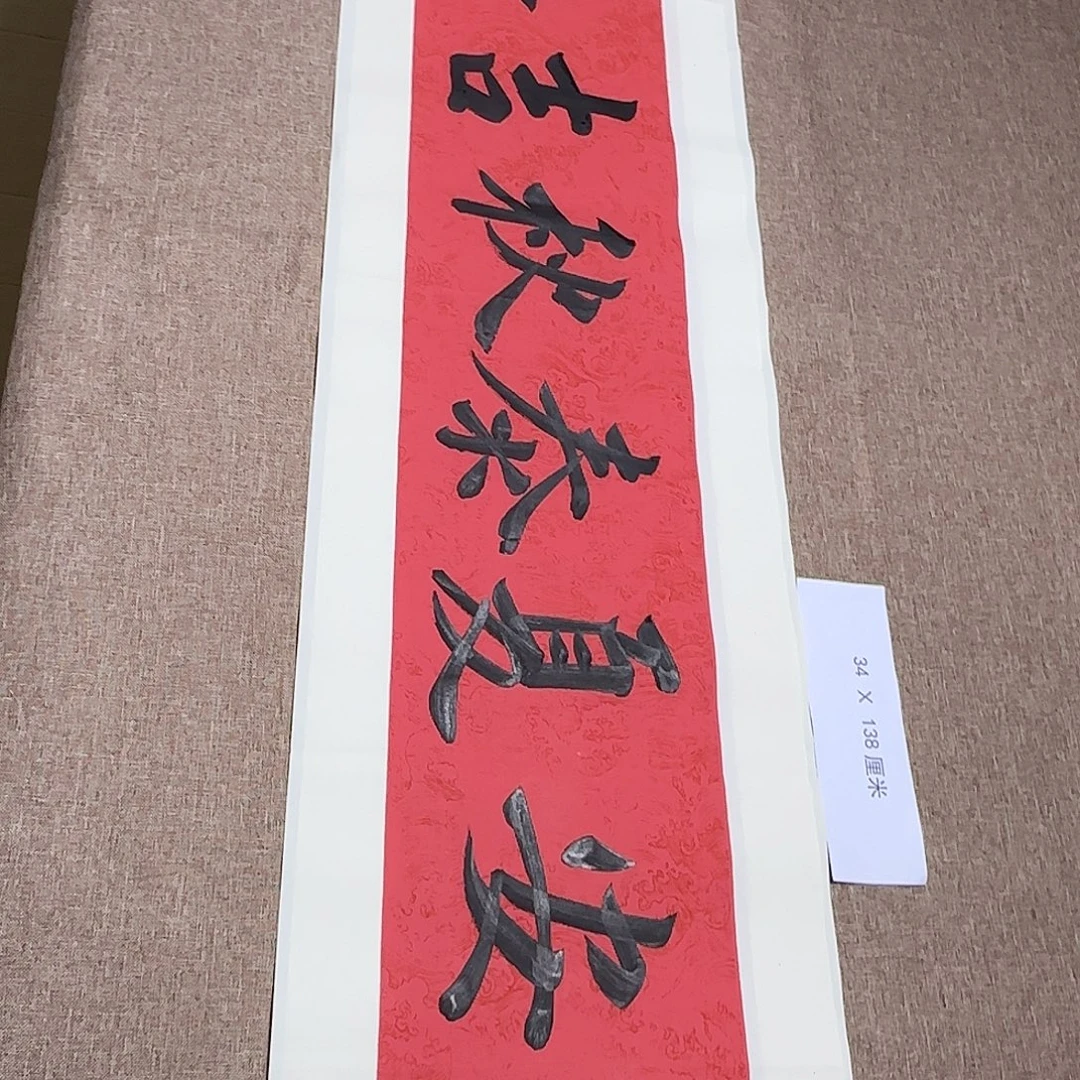 安夏泰秋吉
34 X 138 厘米